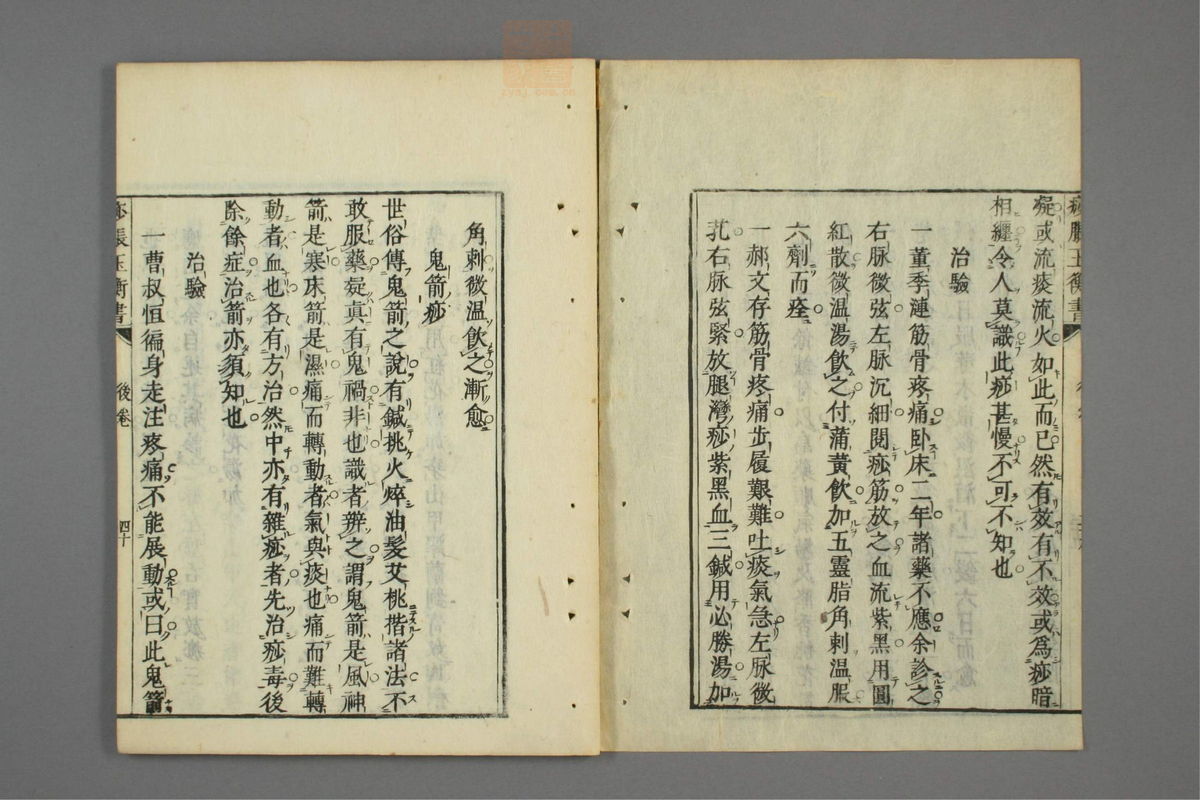 凝或流痰流火如此而已然有效有不效或爲痧暗
相纏令人莫識此痧甚慢不可不知也
治驗
一董季漣筋骨疼痛卧床二年諸藥不應余診之
右脉微弦左脉沉細閱痧筋放之血流紫黑用圓
紅散微溫湯飲之付蒲黄飲加五靈脂角刺溫服
六劑而痊
一郝文存筋骨疼痛步履艱難吐痰氣急左脉微
芤右脉弦緊放腿灣痧紫黑血三鍼用必勝湯加
角刺微溫飲之漸愈
鬼箭痧
世俗傳鬼箭之說有鍼挑火焠油髮艾桃揩諸法不
敢服藥疑真有鬼禍非也識者辨之謂鬼箭是風神
箭是寒床箭是濕痛而轉動者氣與痰也痛而難轉
動者血也各有方治然中亦有雜痧者先治痧毒後
除餘症治箭亦須知也
治驗
一曹叔恒徧身走注疼痛不能展動或曰此鬼箭
痧脹玉衡書
後卷
四十